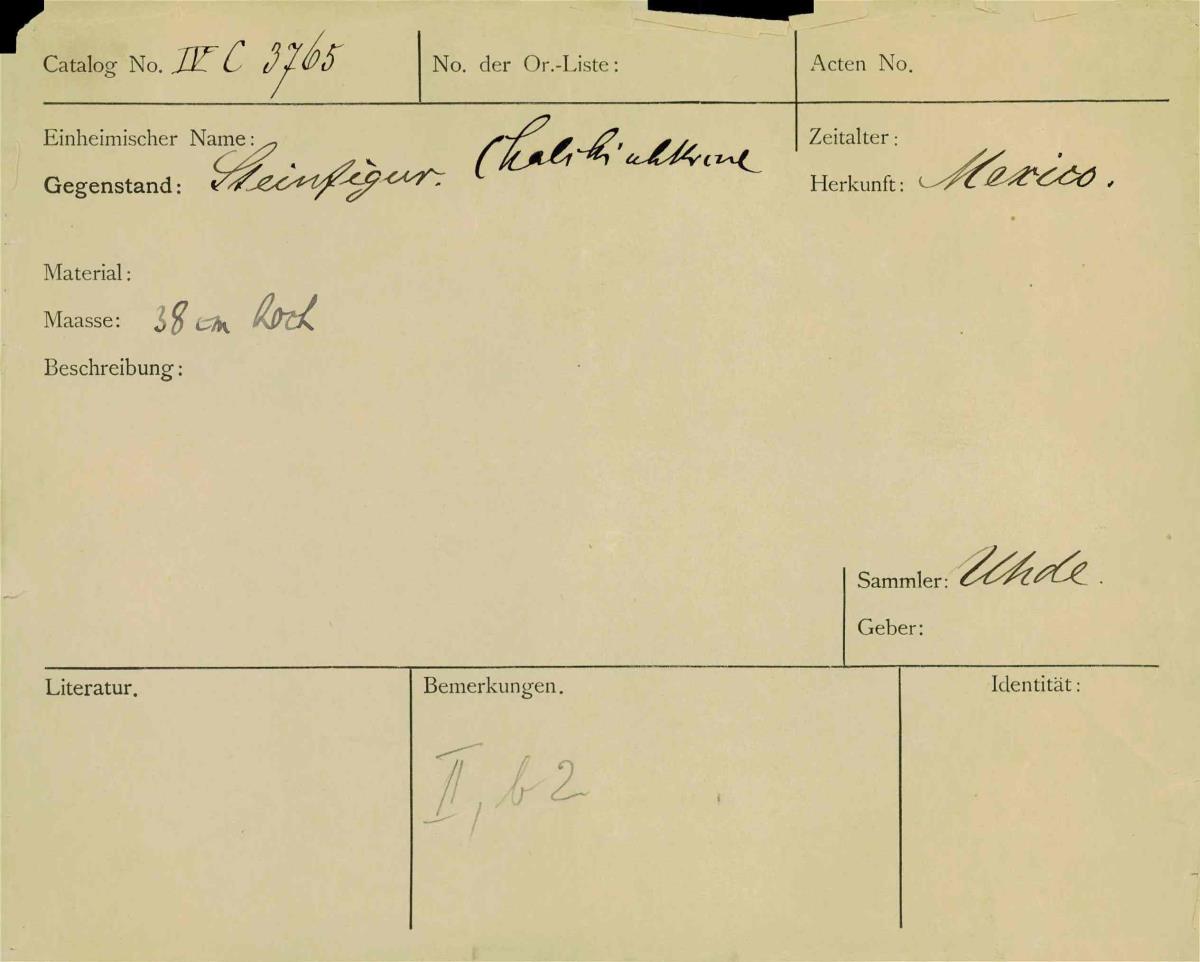 Catalog No. IV C 3765
No. der Or.-Liste:
Acten No.
Einheimischer Name:
Gegenstand: Steinfigur.
Zeitalter:
Herkunft: Mexico.
Material:
Maasse: 38 cm hoch
Beschreibung:
Sammler: Uhde.
Geber:
Literatur.
Bemerkungen.
Identität:
II, b 2